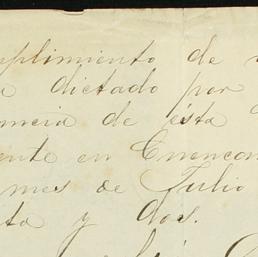 mplimiento de
a dictado por
mcia de ésta
ente en Cuencam
mes de Julio
ta y dos.